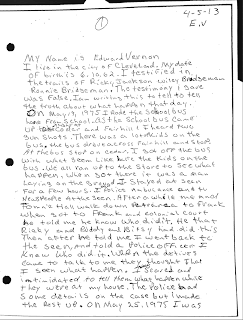 4-5-13
E.V
1
My Name is Edward Vernon
I live in the city of Cleveland, My date
of birth is 6.10.62. I testified in
the trails of Ricky Jackson, Wiley Bridgeman
Ronnie Bridgeman. The testimony I gave
was False, I am writing this to tell to tell
the truth about what happen that day
On May 19, 1975 I Rode the School bus
home From School. As the school bus came
up Cedar and Fairhill I heard two
Gun Shots. There was a lot of Kids on the
bus, the bus drove across Fairhill and Stopt
At the bus stop on
with what seem like the Kids on the
bus. We all ran up to the Store to see what
happen, when I got there it was a man
Laying on the ground I Stayed at
For a few hours. A Police Ambulance and tv
News People at the
Tommie Hall walk down to Frank
When I got to Frank and Colonial Court
he told me he know who did it, He that
Ricky and Buddy and Bitsy had did this
Then after he told me I went back to
the seen, and told a Police officer I
Knew who did it. When the detives
came to talk to me they thought that
I seen what happen, I Scared and
intimidated to tell them what happen while
they were at my house. The Police had
Some details on the case but I made
the Rest up. On May 25, 1975 I was